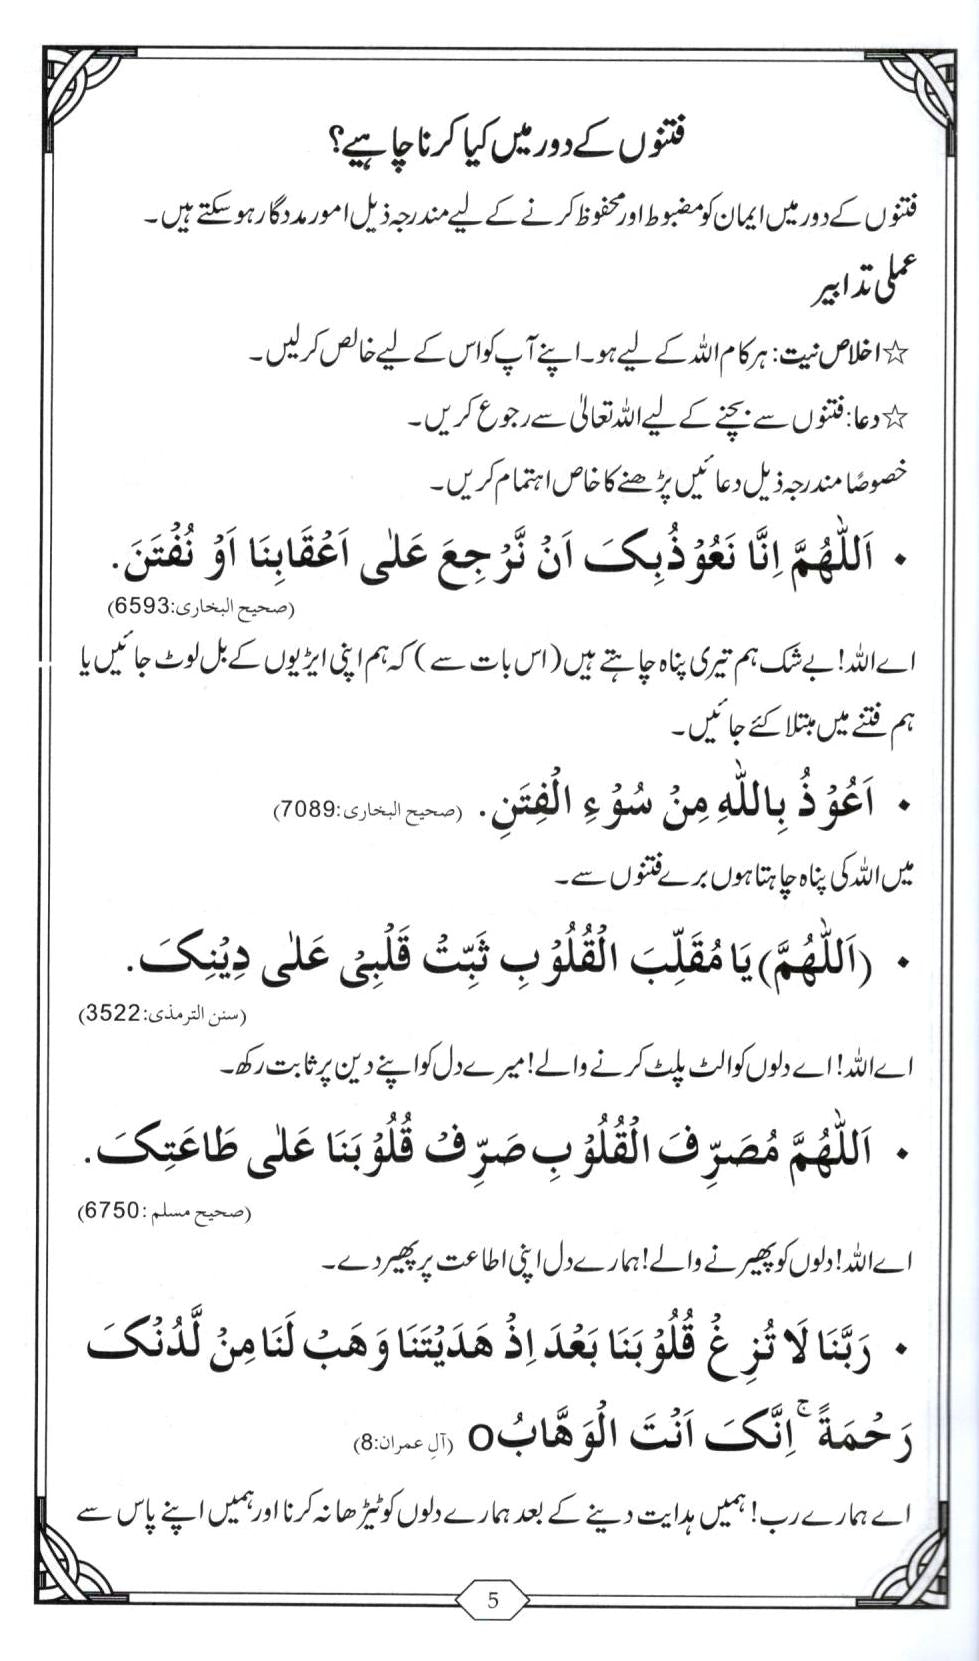 فتنوں کے دور میں کیا کرنا چاہیے؟
فتنوں کے دور میں ایمان کو مضبوط اور محفوظ کرنے کے لیے مندرجہ ذیل امور مددگار ہو سکتے ہیں۔
عملی تدابیر
☆ اخلاص نیت: ہر کام اللہ کے لیے ہو۔ اپنے آپ کو اس کے لیے خالص کر لیں۔
☆ دعا: فتنوں سے بچنے کے لیے اللہ تعالیٰ سے رجوع کریں۔
خصوصًا مندرجہ ذیل دعائیں پڑھنے کا خاص اہتمام کریں۔
• اَللّٰهُمَّ اِنَّا نَعُوْذُبِکَ اَنْ نَّرْجِعَ عَلٰی اَعْقَابِنَا اَوْ نُفْتَنَ.
(صحیح البخاری:6593)
اے اللہ! بے شک ہم تیری پناہ چاہتے ہیں (اس بات سے) کہ ہم اپنی ایڑیوں کے بل لوٹ جائیں یا
ہم فتنے میں مبتلا کئے جائیں۔
• اَعُوْذُ بِاللّٰهِ مِنْ سُوْءِ الْفِتَنِ. (صحیح البخاری:7089)
میں اللہ کی پناہ چاہتا ہوں برے فتنوں سے۔
• (اَللّٰهُمَّ) یَا مُقَلِّبَ الْقُلُوْبِ ثَبِّتْ قَلْبِیْ عَلٰی دِیْنِکَ.
(سنن الترمذی:3522)
اے اللہ! اے دلوں کو الٹ پلٹ کرنے والے! میرے دل کو اپنے دین پر ثابت رکھ۔
• اَللّٰهُمَّ مُصَرِّفَ الْقُلُوْبِ صَرِّفْ قُلُوْبَنَا عَلٰی طَاعَتِکَ.
(صحیح مسلم:6750)
اے اللہ! دلوں کو پھیرنے والے! ہمارے دل اپنی اطاعت پر پھیر دے۔
• رَبَّنَا لَا تُزِغْ قُلُوْبَنَا بَعْدَ اِذْ هَدَیْتَنَا وَهَبْ لَنَا مِنْ لَّدُنْکَ
رَحْمَةً ۚ اِنَّکَ اَنْتَ الْوَهَّابُ o (آلِ عمران:8)
اے ہمارے رب! ہمیں ہدایت دینے کے بعد ہمارے دلوں کو ٹیڑھا نہ کرنا اور ہمیں اپنے پاس سے
5